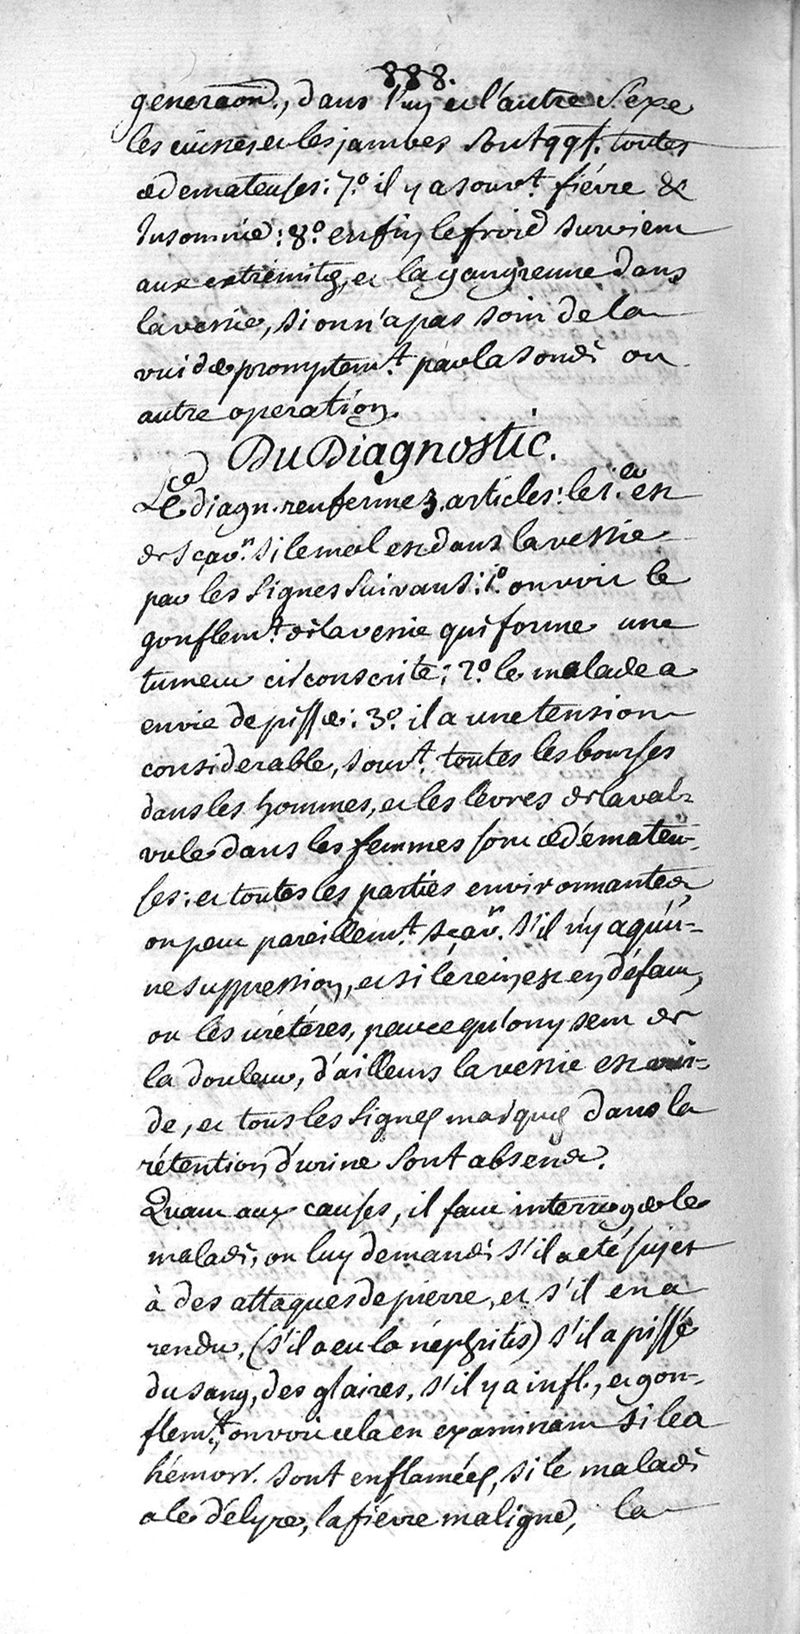 888.
géneraõn., dans l'un et l'autre sexe
les cuisses et les jambes sont qqf. toutes
œdemateuses: 7.º il y a souv.t fiévre &
Insomnie: 8.º enfin le froid survient
aux extrémités, et la gangrenne dans
la vessie, si on n'a pas soin de la
vuider promptem.t par la sonde ou
autre operation.
Du Diagnostic.
Le diagn. renferme 3. articles: le 1.er est
de sçav.r si le mal est dans la vessie
par les signes suivants: 1.º on voit le
gonflem.t de la vessie qui forme une
tumeur circonscrite; 2.º le malade a
envie de pisser: 3.º il a une tension
considerable, souv.t toutes les bourses
dans les hommes, et les lévres de la val-
vule dans les femmes sont œdémateu-
ses: et toutes les parties environnantes,
on peut pareillem.t sçav.r s'il n'y a qu'u-
ne suppression, et si le rein est en défaut,
ou les uretéres, parce qu'on y sent de
la douleur, d'ailleurs la vessie est vui-
de, et tous les signes marqués dans la
rétention d'urine sont absens.
Quant aux causes, il faut interroger le
malade, on luy demande s'il a eté sujet
à des attaques de pierre, et s'il en a
rendu, (s'il a eu la néphritis) s'il a pissé
du sang, des glaires, s'il y a infl., et gon-
flem.t, on voit cela en examinant si les
hémorr. sont enflamées, si le malade
a le délyre, la fiévre maligne, la